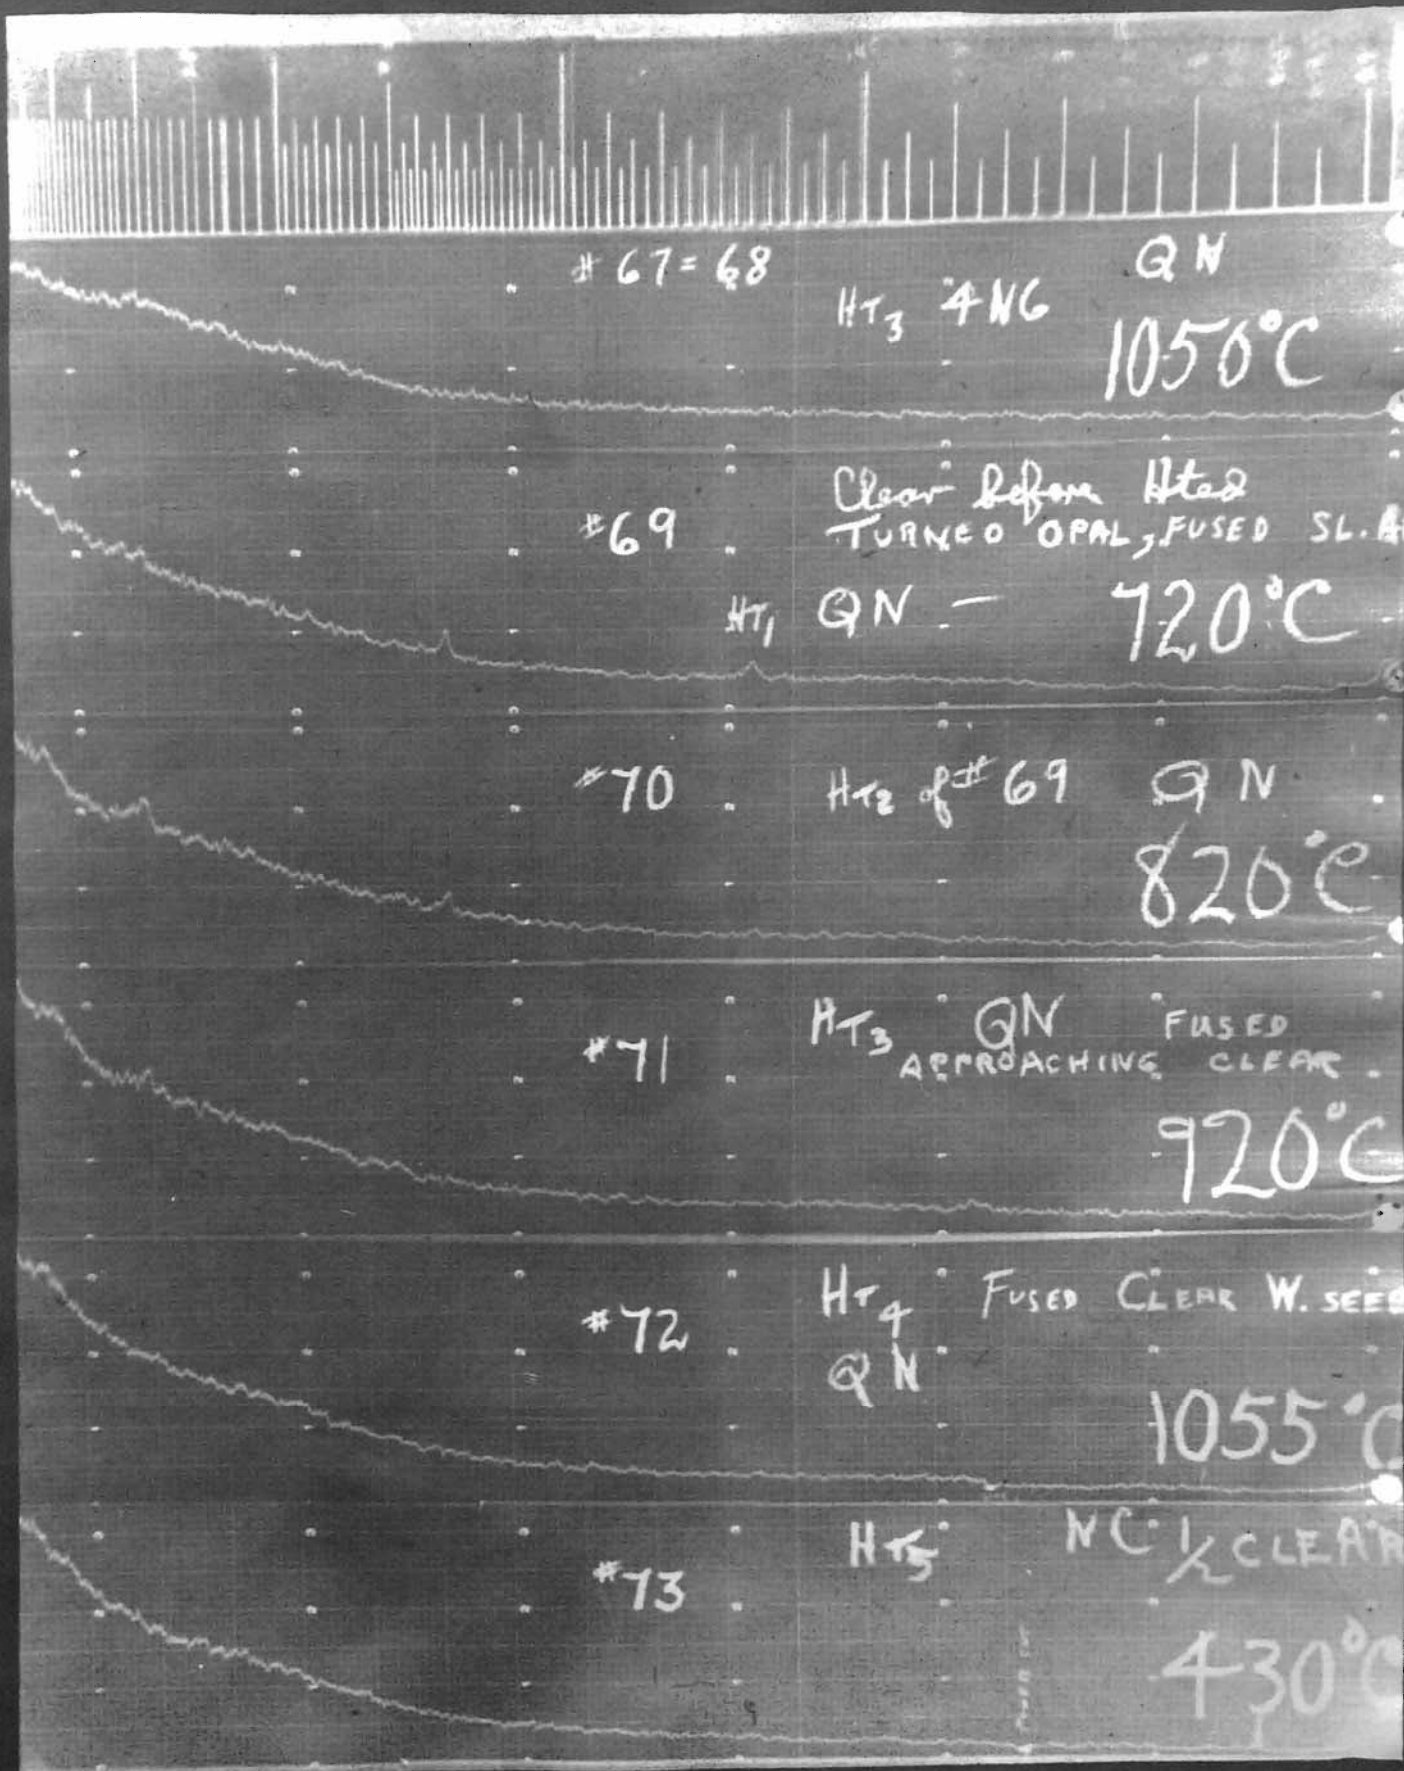 # 67 = 68
QN
HT3 4NG
1050°C
Clear before Hted
#69
TURNED OPAL, FUSED SL.
HT1 QN – 720°C
#70 HT2 of #69 QN
820°C
HT3 QN FUSED
#71
APPROACHING CLEAR
920°C
HT4 FUSED CLEAR W. SEE
#72
QN
1055°C
HT5 NC ½ CLEAR
#73
430°C